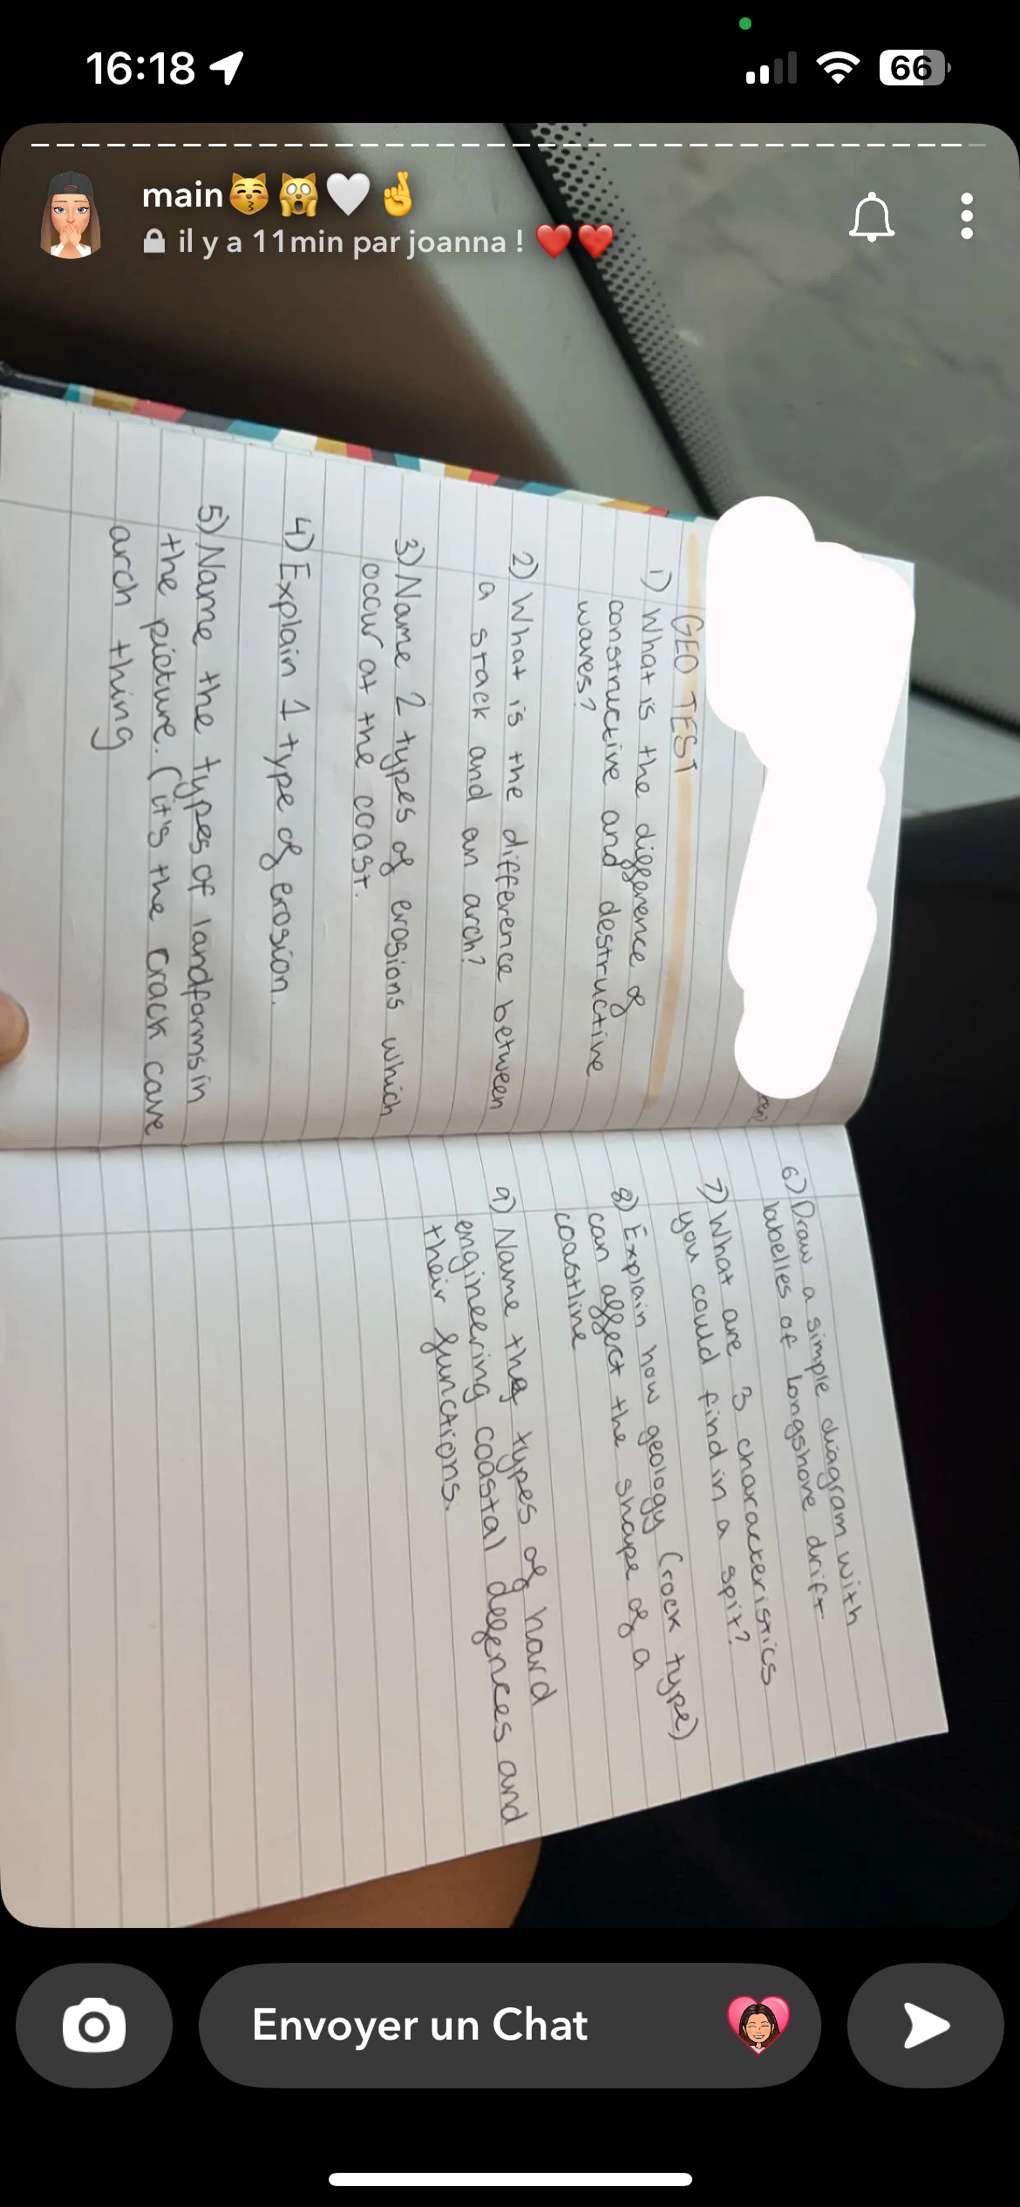 16:18
66
main😽🙀🤍🤞
il y a 11min par joanna ! ❤️❤️
GEO TEST
1) What is the difference of
constructive and destructive
waves?
2) What is the difference between
a stack and an arch?
3) Name 2 types of erosions which
occur at the coast.
4) Explain 1 type of erosion.
5) Name the types of landforms in
the picture. (it's the crack cave
arch thing
6) Draw a simple diagram with
labelles of longshore drift
7) What are 3 characteristics
you could find in a spit?
8) Explain how geology (rock type)
can affect the shape of a
coastline
9) Name the types of hard
engineering coastal deffences and
their functions.
Envoyer un Chat